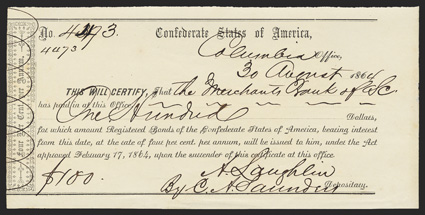 No. 4473. Confederate States of America,
4473
Columbia Office,
30 August 1864
THIS WILL CERTIFY, That the Merchants Bank of So Ca
has paid in at this Office
One Hundred Dollars,
for which amount Registered Bonds of the Confederate States of America, bearing interest
from this date, at the rate of four per cent. per annum, will be issued to him, under the Act
approved February 17, 1864, upon the surrender of this certificate at this office.
$100. A. Laughlin
By C. A. Saunders Depositary.
Four Per Cent. Per Annum.